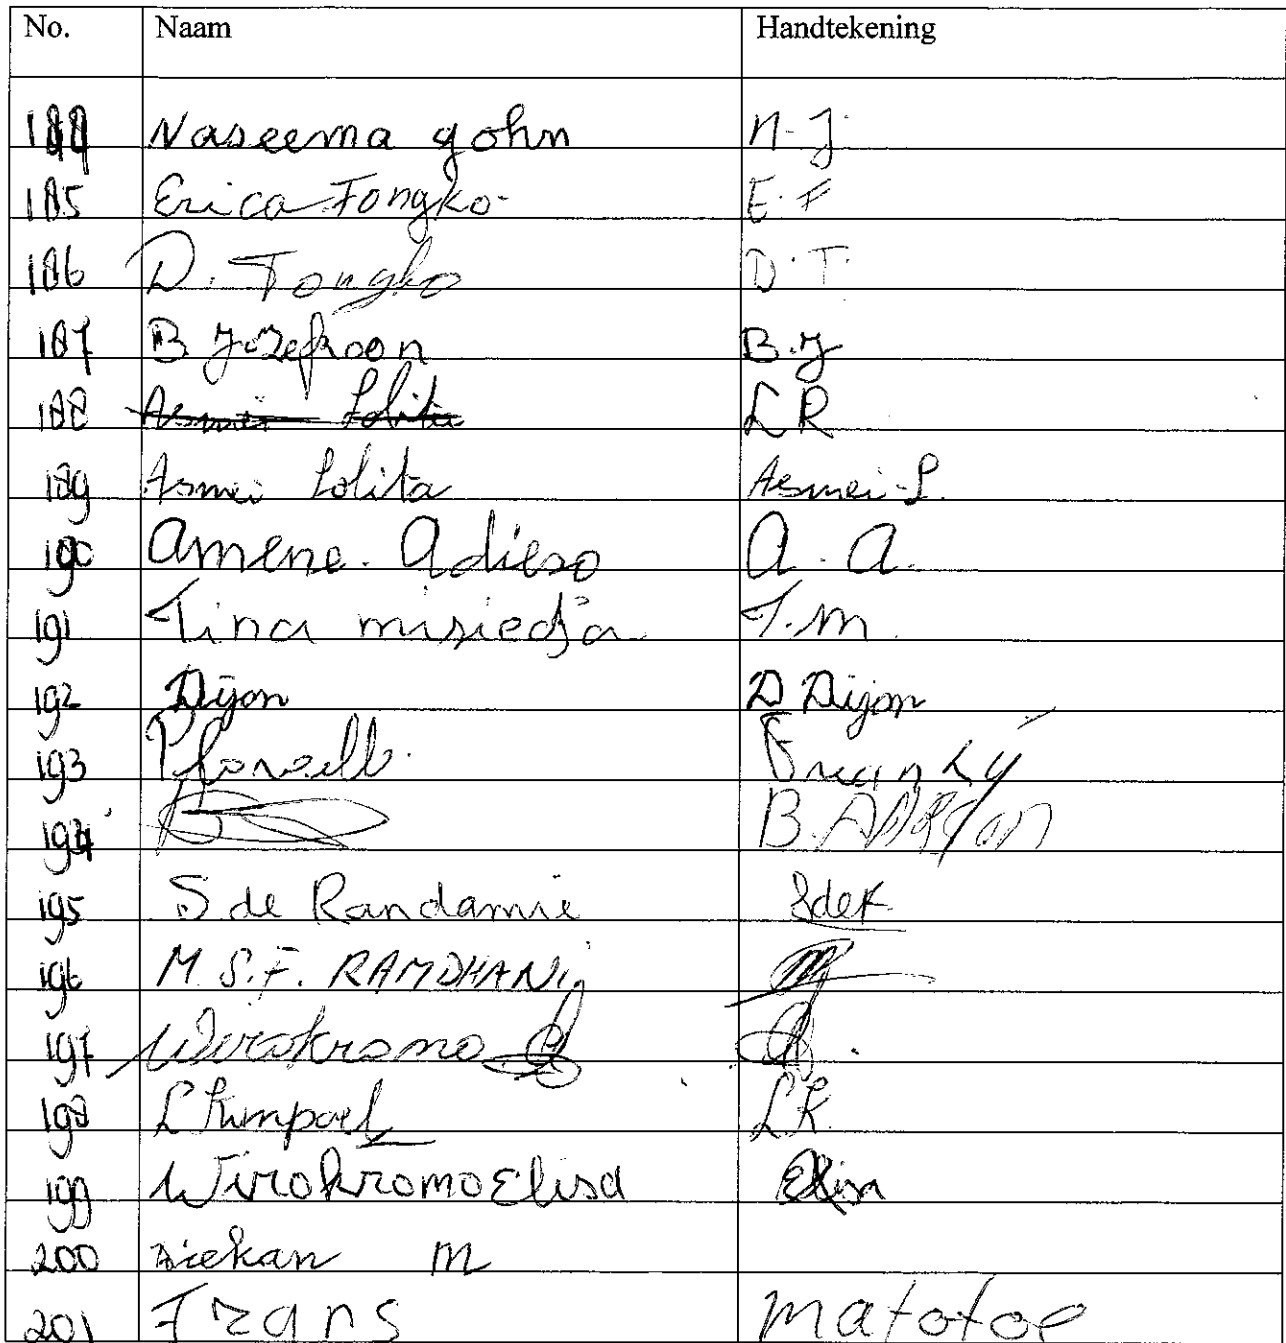 No. Naam Handtekening
184 Naseema John N.J.
185 Erica Tongko E.T
186 D. Tongko D.T.
187 B. Jozefzoon B.J
188 Asmei Lolita L R
189 Asmei Lolita Asmei L.
190 Amene. Adieso A. A.
191 Tina misiedja T.m
192 Dijon D Dijon
193
194 B.
195 S de Randamie
196 M.S.F. RAMDHANI
197 Wirokromo
198 L Kumpael L K.
199 Wirokromo Elisa Elisa
200 Siekan M
201 Frans matotoe